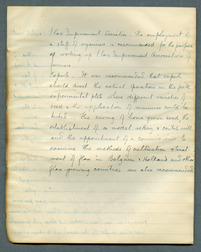 Flax Improvement Association. The employment of
a staff of organisers is recommended for the purpose
of working up Flax Improvement Associations of
farmers
Experts. It was recommended that experts
should assist the actual operations in the
experimental plots where different varieties of
seed & the application of manures could be
tested. The saving of home grown seed the
establishment of a model retting & scutch mill
and the appointment of a commission to
examine the methods of cultivation & treat
ment of flax in Belgium & Holland and other
flax growing countries are also recommended